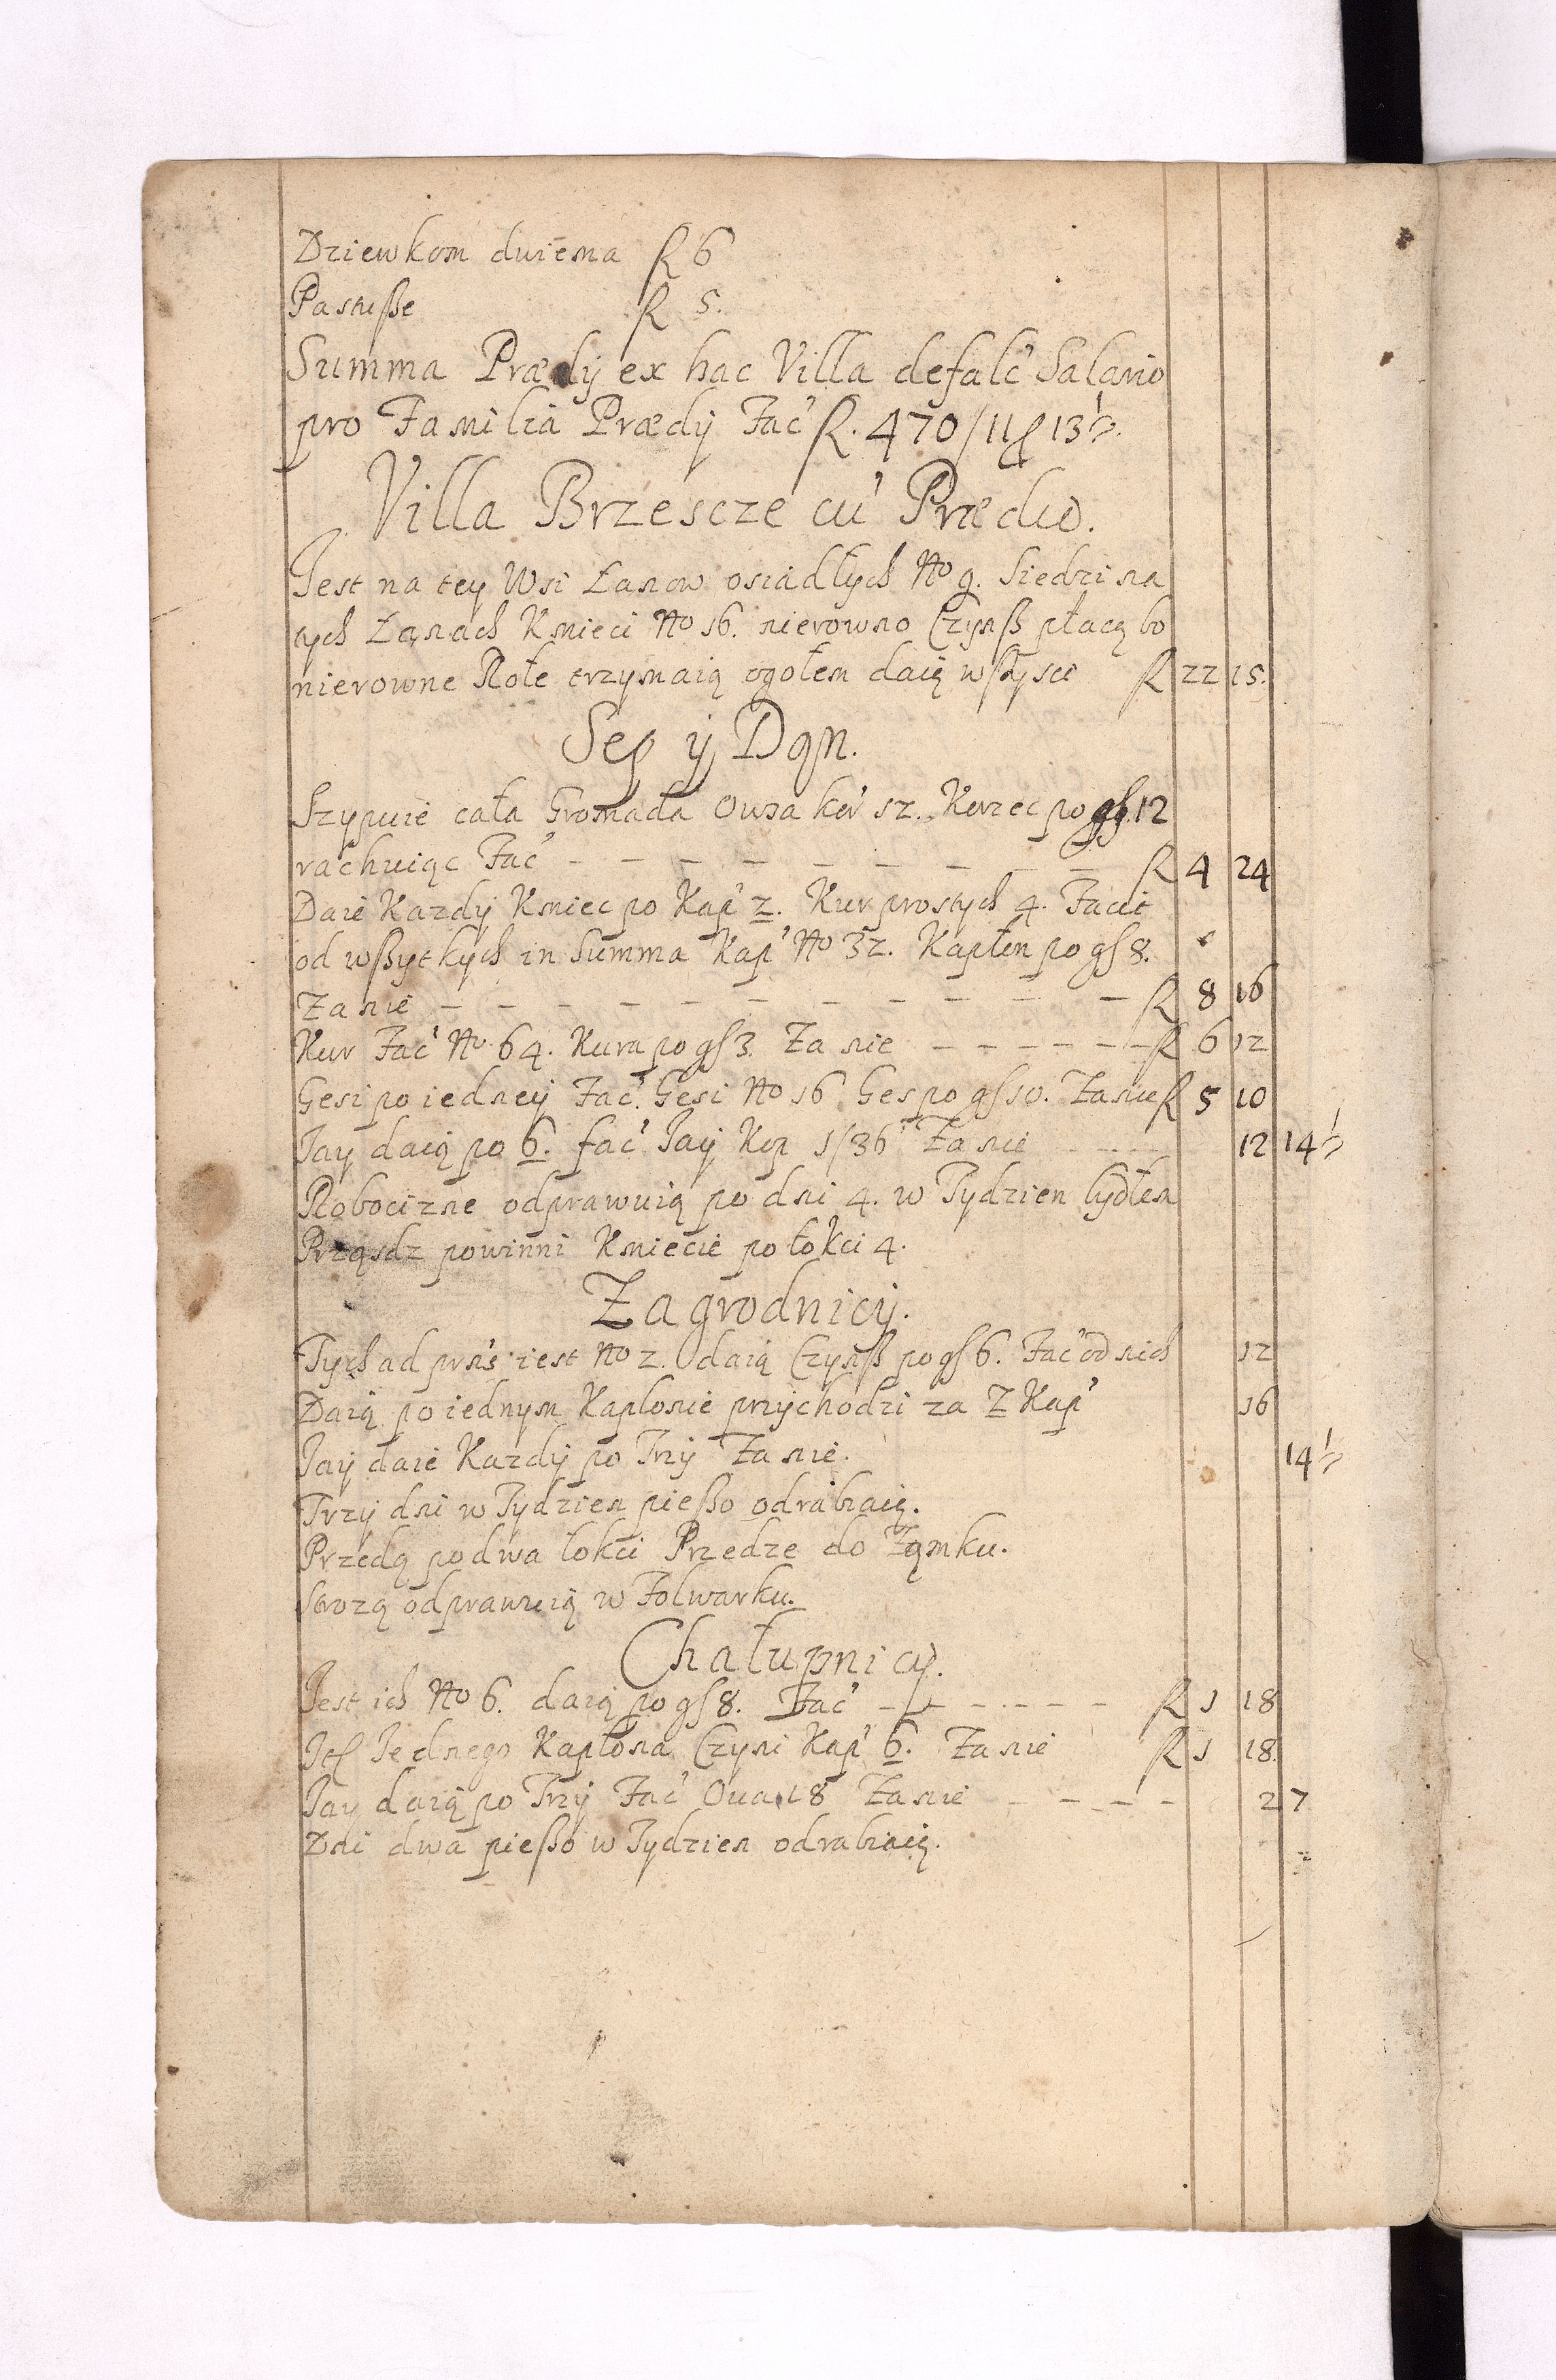 Dziewkom dwiema R 6
Pastusße R 5.
Summa Prædij ex hac Villa defalc' Salario
pro Familia Prædij Fac' R. 470/11 13½.
Villa Brzescze cu' Prædio.
Jest na tey Wsi Łanow osiadłych No 9. Siedzi na
tych Łąnach Kmieci No 16. nierowno Czynß płacą bo
nierowne Role trzymaią ogołem daią wßyscy R 22 15.
Sep y Dąn.
Szypuie cała Gromada Owsa kor' 12. Korzec po gß 12
rachuiąc Fac' - - - - - - - - - R 4 24
Daie Kazdy Kmiec po Kap' 2. Kur prostych 4. Facit
od wßytkych in Summa Kap' No 32. Kapłon po gß 8.
Za nie - - - - - - - - - - - R 8 16
Kur Fac' No 64. Kura po gß 3. Za nie - - - - - - R 6 12
Gesi po iedney Fac'. Gesi No 16 Ges po gß 10. Za nie R 5 10
Jay daią po 6. fac' Jay Kop 1/36 Za nie - - - - 12 14½
Robocizne odprawuią po dni 4. w Tydzien bydłem
Prząsdz powinni Kmiecie po łokci 4.
Zagrodnicy.
Tych ad prns' iest No 2. daią Czynß po gß 6. Fac' od nich 12
Daią po iednym Kaplonie przychodzi za 2 Kap' 16
Jay daie Kazdy po Trzy Za nie. 14½
Trzy dni w Tydzien pießo odrabiaią.
Przedą po dwa łokci Przedze do Ząmku.
Strozą odprawuią w Folwarku.
Chałupnicy.
Jest ich No 6. daią po gß 8. Fac' - - - - - - R 1 18
Jednego Kapłona Czyni Kap' 6. Za nie R 1 18.
Jay daią po Trzy Fac' Oua 18 Za nie - - - - 2 7
Dni dwa pießo w Tydzien odrabiaią.